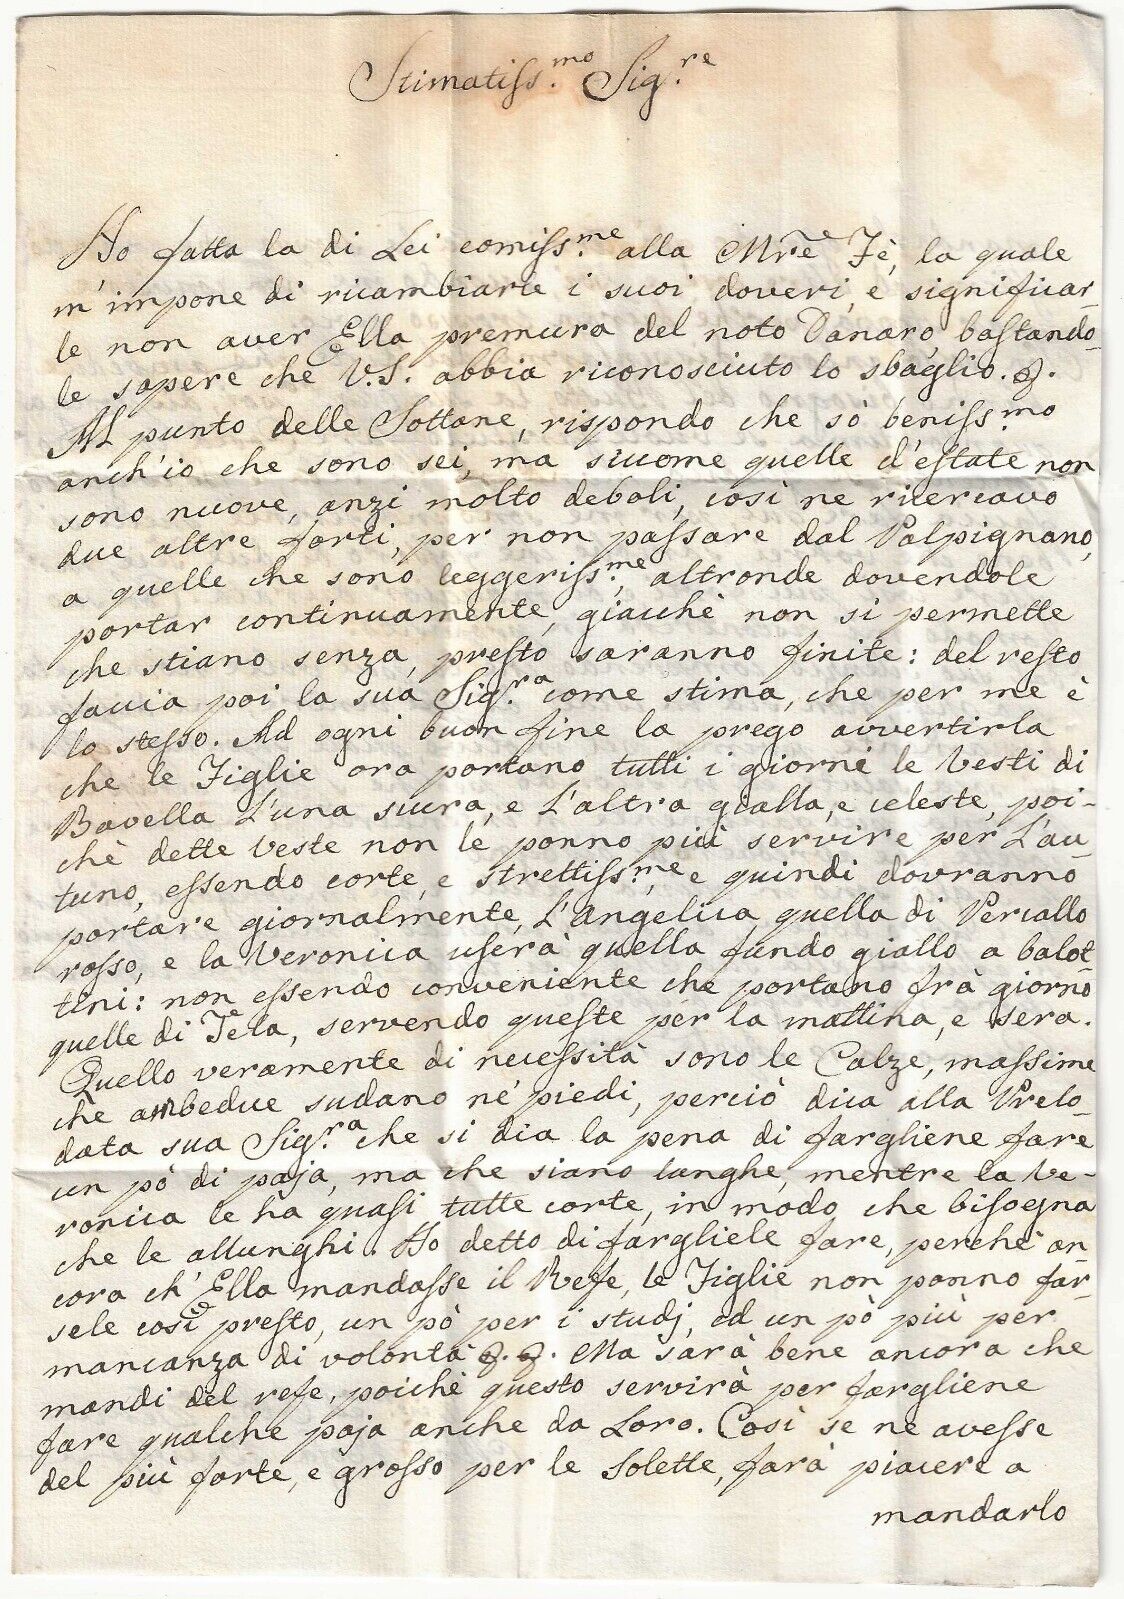 Stimatiss.mo Sig.re
Ho fatta la di Lei comiss.me alla Mre Fè, la quale
m'impone di ricambiarle i suoi doveri, e significar-
le non aver Ella premura del noto Danaro, bastando-
le sapere che V.S. abbia riconosciuto lo sbaglio. &.
Al punto delle Sottane, rispondo che sò beniss.mo
anch'io che sono sei, ma siccome quelle d'estate non
sono nuove, anzi molto deboli, così ne ricercavo
due altre forti, per non passare dal Valpignano,
a quelle che sono leggeriss.me, altronde dovendole
portar continuamente, giacchè non si permette
che stiano senza, presto saranno finite: del resto
faccia poi la sua Sig.ra come stima, che per me è
lo stesso. Ad ogni buon fine la prego avvertirla
che le Figlie ora portano tutti i giorni le Vesti di
Bavella L'una scura, e L'altra gialla, e celeste, poi-
chè dette Veste non le ponno più servire per L'au-
tuno, essendo corte, e strettiss.me e quindi dovranno
portare giornalmente, L'Angelica quella di Percallo
rosso, e la Veronica userà quella fundo giallo a balot-
tini: non essendo conveniente che portano frà giorno
quelle di Tela, servendo queste per la mattina, e sera.
Quello veramente di necessità sono le Calze, massime
che ambedue sudano né piedi, perciò dica alla Prelo-
data sua Sig.ra che si dia la pena di fargliene fare
un pò di paja, ma che siano lunghe, mentre la Ve-
ronica le ha quasi tutte corte, in modo che bisogna
che le allunghi. Ho detto di fargliele fare, perchè an-
cora ch'Ella mandasse il Refe, le Figlie non ponno far-
sele così presto, un pò per i studj, ed un pò più per
mancanza di volontà &. &. Ma sarà bene ancora che
mandi del refe, poichè questo servirà per fargliene
fare qualche paja anche da Loro. Così se ne avesse
del più forte, e grosso per le Solette, farà piacere a
mandarlo